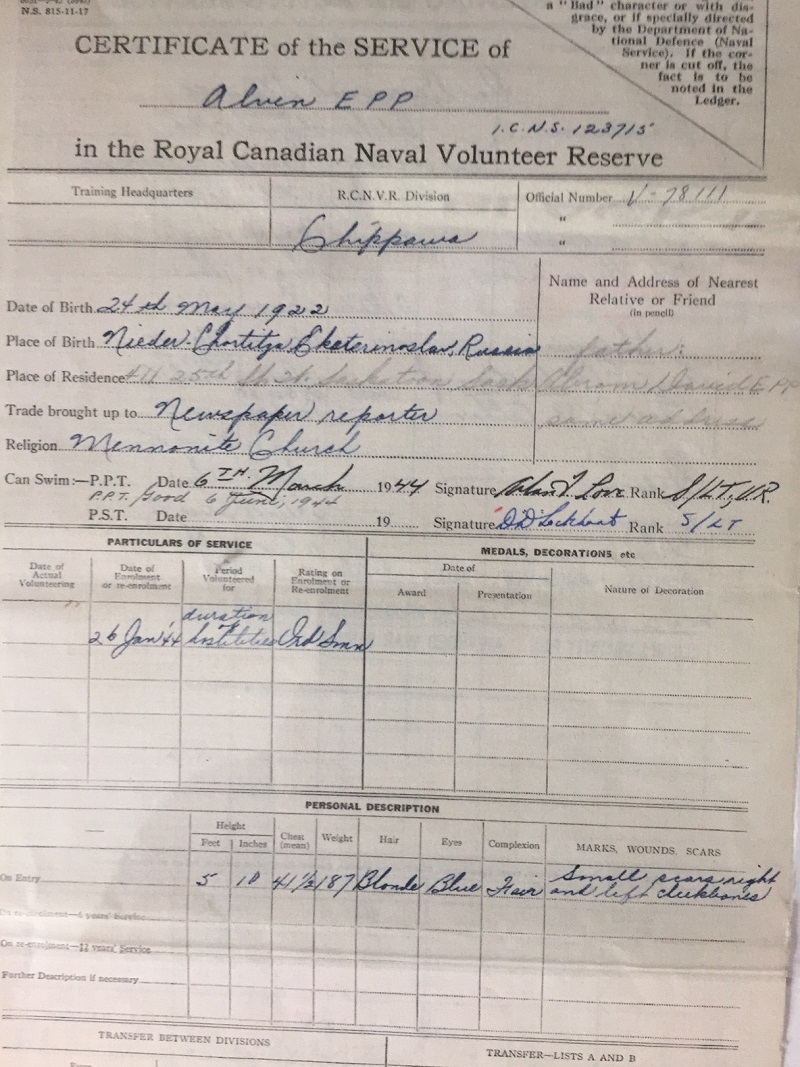 N.S. 815-11-17
a "Bad" character or with dis-
grace, or if specially directed
by the Department of Na-
tional Defence (Naval
Service). If the cor-
ner is cut off, the
fact is to be
noted in the
Ledger.
CERTIFICATE of the SERVICE of
Alvin EPP
I.C.N.S. 123715
in the Royal Canadian Naval Volunteer Reserve
Training Headquarters
R.C.N.V.R. Division
Chippawa
Official Number V-78111
"
"
Date of Birth 24th May 1922
Place of Birth Nieder-Chortitza, Ekaterinoslav, Russia
Place of Residence 411 25th St. W. Saskatoon Sask
Trade brought up to Newspaper reporter
Religion Mennonite Church
Name and Address of Nearest
Relative or Friend
(in pencil)
father:
Abram David EPP
same address
Can Swim:—P.P.T. Date 6TH March 1944 Signature Love Rank S/LT, V.R.
P.P.T. Good 6 June, 1944
P.S.T. Date 19 Signature Lockhart Rank S/LT
PARTICULARS OF SERVICE
MEDALS, DECORATIONS, etc
Date of
Actual
Volunteering
Date of
Enrolment
or re-enrolment
Period
Volunteered
for
Rating on
Enrolment or
Re-enrolment
Date of
Award
Presentation
Nature of Decoration
26 Jan '44
duration
of
hostilities
Ord Smn
PERSONAL DESCRIPTION
Height
Feet
Inches
Chest
(mean)
Weight
Hair
Eyes
Complexion
MARKS, WOUNDS, SCARS
On Entry 5 10 41 ½ 187 Blonde Blue Fair Small scars right
and left cheekbones
On re-enrolment—6 years' Service
On re-enrolment—12 years' Service
Further Description if necessary
TRANSFER BETWEEN DIVISIONS
TRANSFER—LISTS A AND B
From